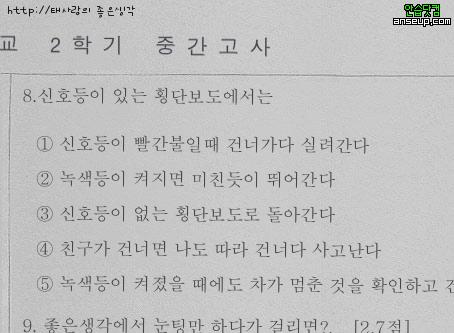 http://태사랑의 좋은생각
안습닷컴
anseup.com
교 2학기 중간고사
8.신호등이 있는 횡단보도에서는
① 신호등이 빨간불일때 건너가다 실려간다
② 녹색등이 켜지면 미친듯이 뛰어간다
③ 신호등이 없는 횡단보도로 돌아간다
④ 친구가 건너면 나도 따라 건너다 사고난다
⑤ 녹색등이 켜졌을 때에도 차가 멈춘 것을 확인하고 건
9. 좋은생각에서 눈팅만 하다가 걸리면?. [2.7점]